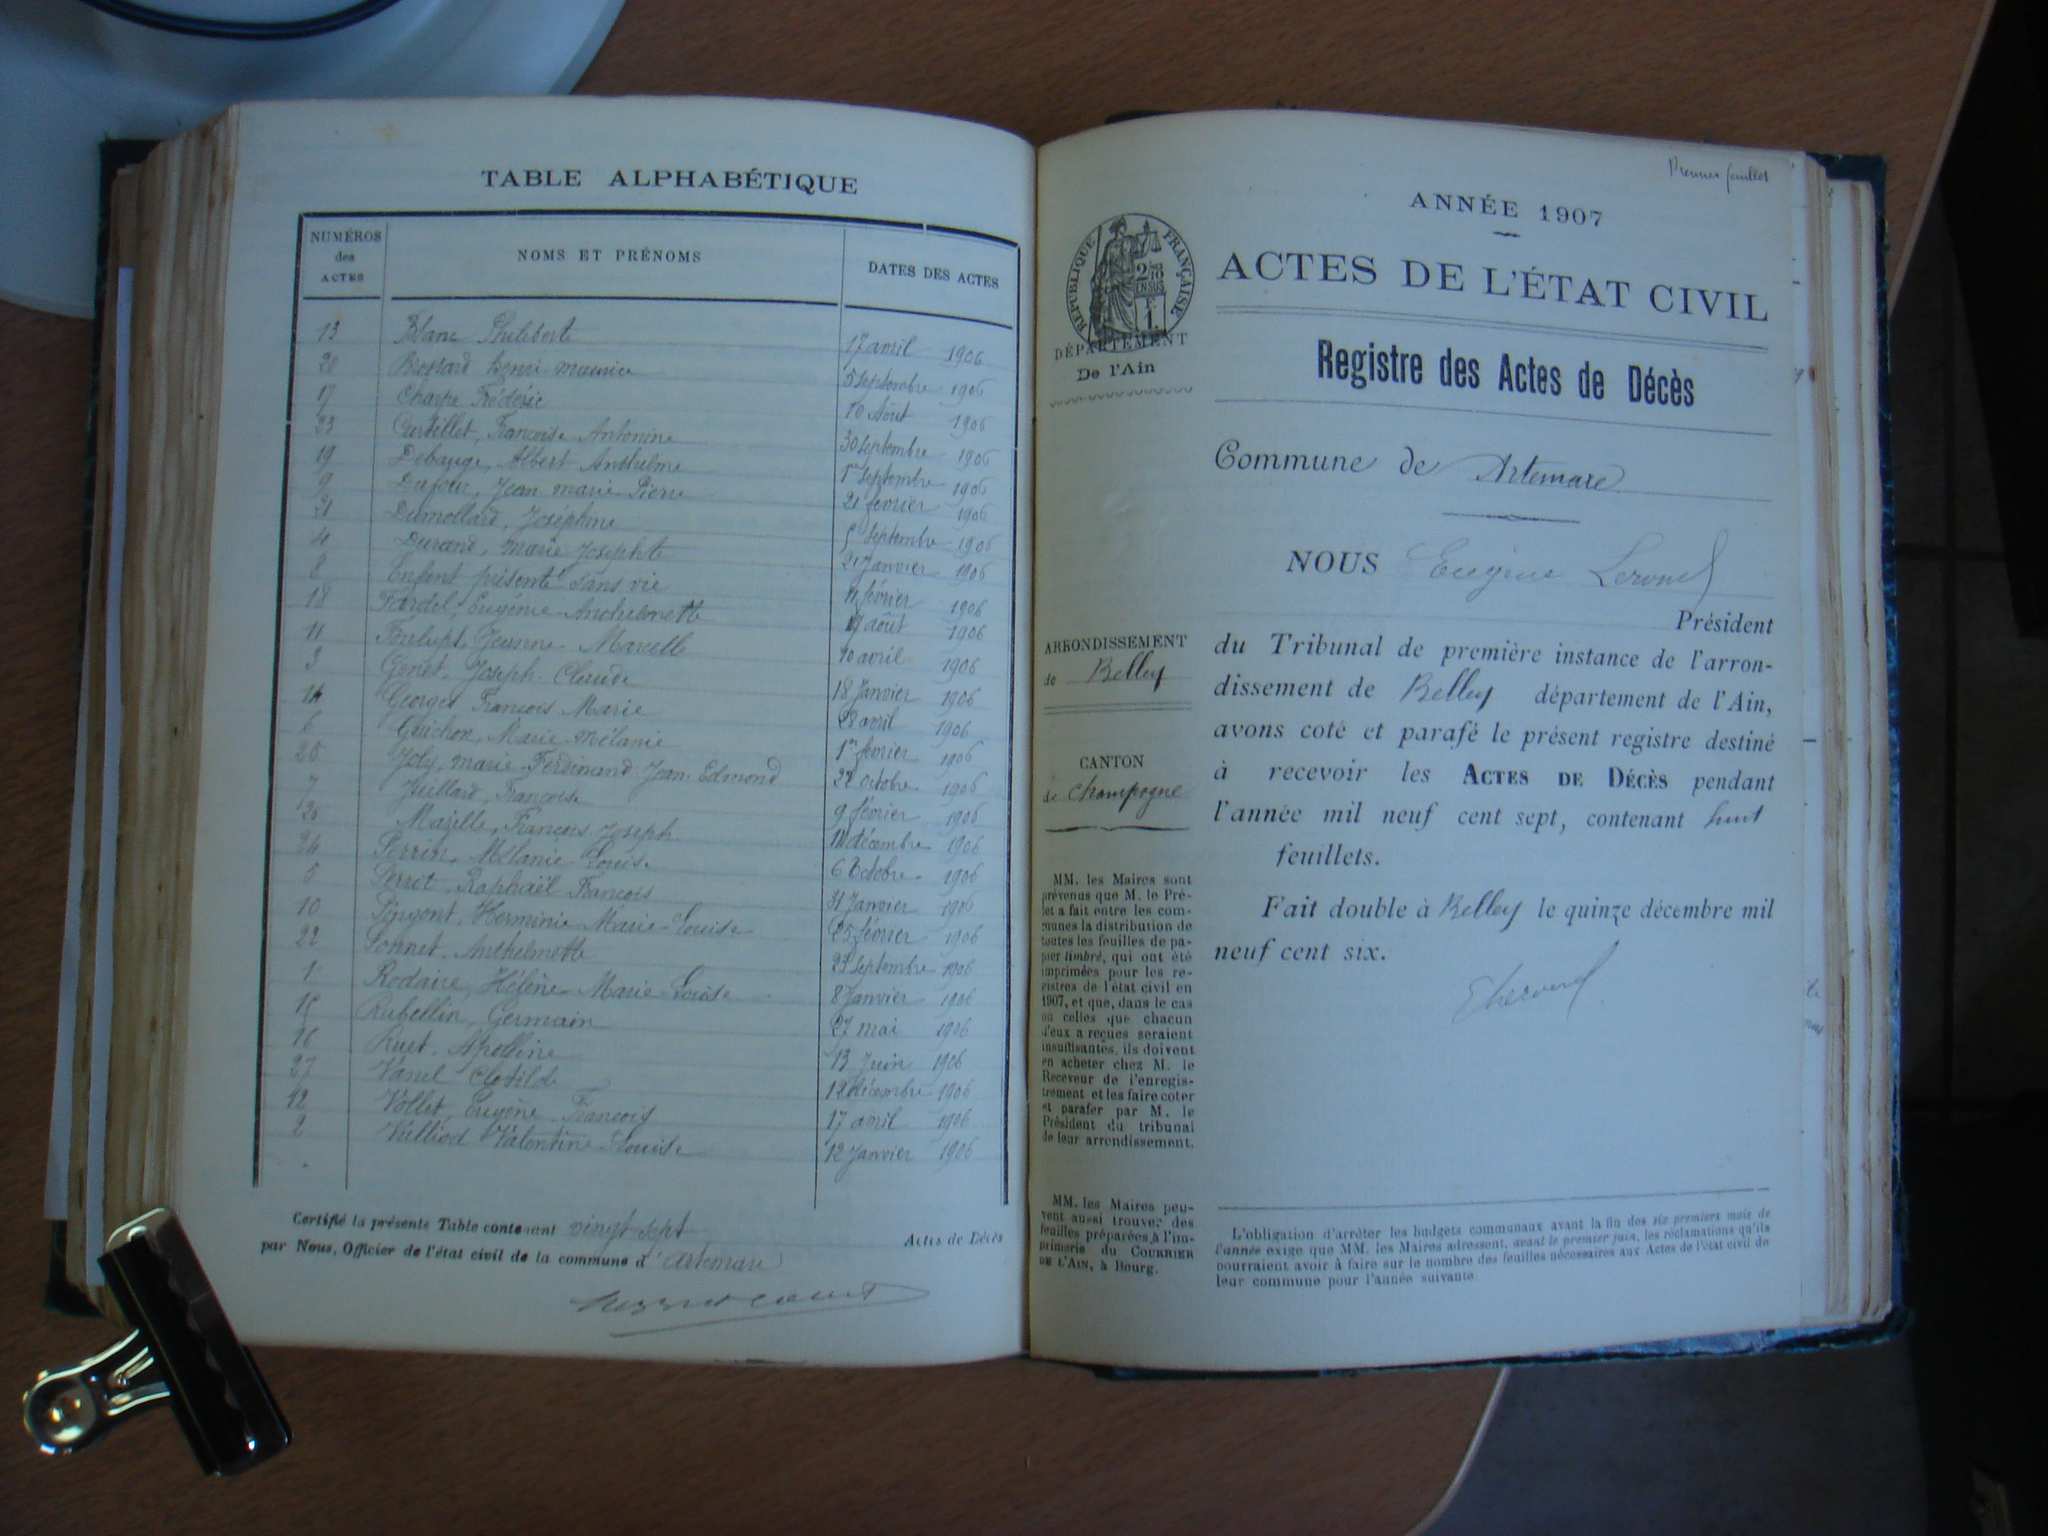 TABLE ALPHABÉTIQUE
NUMÉROS des ACTES NOMS ET PRÉNOMS DATES DES ACTES
13 Blanc Philibert 17 avril 1906
20 Henri maurice 5 septembre 1906
17 Charpe Frédéric 10 Août 1906
23 Curtillet, Françoise Antonine 30 septembre 1906
19 Debauge, Albert Anthelme 1er septembre 1906
9 Dufour, Jean marie Pierre 21 février 1906
21 Dumollard, Joséphine 5 septembre 1906
4 Durand, marie Josephte 21 Janvier 1906
8 Enfant présenté sans vie 11 février 1906
18 Fardel, Eugénie Anthelmette 19 août 1906
11 Jeanne Marcelle 10 avril 1906
3 Genet, Joseph Claude 18 Janvier 1906
14 Georges François Marie 28 avril 1906
6 Guichon, Marie Mélanie 1er février 1906
25 Joly, marie Ferdinand Jean Edmond 22 octobre 1906
7 Juillard, Françoise 9 février 1906
26 Mazelle, François Joseph décembre 1906
24 Perrin, Mélanie Louise 6 Octobre 1906
5 Perrot Raphaël François 31 Janvier 1906
10 Pingont, Herminie Marie Louise 25 février 1906
22 Ponnet Anthelmette 23 septembre 1906
1 Rodaire, Hélène Marie Louise 8 Janvier 1906
15 Rubellin, Germain 27 mai 1906
16 Ruet Apolline 13 Juin 1906
27 Vanel Clotilde 12 décembre 1906
12 Vollet, Eugène François 17 avril 1906
2 Vulliod Valentine Louise 12 Janvier 1906
Certifié la présente Table contenant vingt sept Actes de Décès
par Nous, Officier de l'état civil de la commune d'Artemare
Premier feuillet
ANNÉE 1907
RÉPUBLIQUE FRANÇAISE
ACTES DE L'ÉTAT CIVIL
DÉPARTEMENT
De l'Ain
Registre des Actes de Décès
Commune de Artemare
NOUS Eugène
Président
ARRONDISSEMENT
de Belley
du Tribunal de première instance de l'arron-
dissement de Belley département de l'Ain,
avons coté et parafé le présent registre destiné
à recevoir les ACTES DE DÉCÈS pendant
l'année mil neuf cent sept, contenant huit
feuillets.
Fait double à Belley le quinze décembre mil
neuf cent six.
CANTON
de Champagne
MM. les Maires sont
prévenus que M. le Pré-
fet a fait entre les com-
munes la distribution de
toutes les feuilles de pa-
pier timbré, qui ont été
imprimées pour les re-
gistres de l'état civil en
1907, et que, dans le cas
où celles que chacun
d'eux a reçues seraient
insuffisantes, ils doivent
en acheter chez M. le
Receveur de l'enregis-
trement et les faire coter
et parafer par M. le
Président du tribunal
de leur arrondissement.
MM. les Maires peu-
vent aussi trouver des
feuilles préparées à l'im-
primerie du COURRIER
DE L'AIN, à Bourg.
L'obligation d'arrêter les budgets communaux avant la fin des six premiers mois de
l'année exige que MM. les Maires adressent, avant le premier juin, les réclamations qu'ils
pourraient avoir à faire sur le nombre des feuilles nécessaires aux Actes de l'état civil de
leur commune pour l'année suivante.